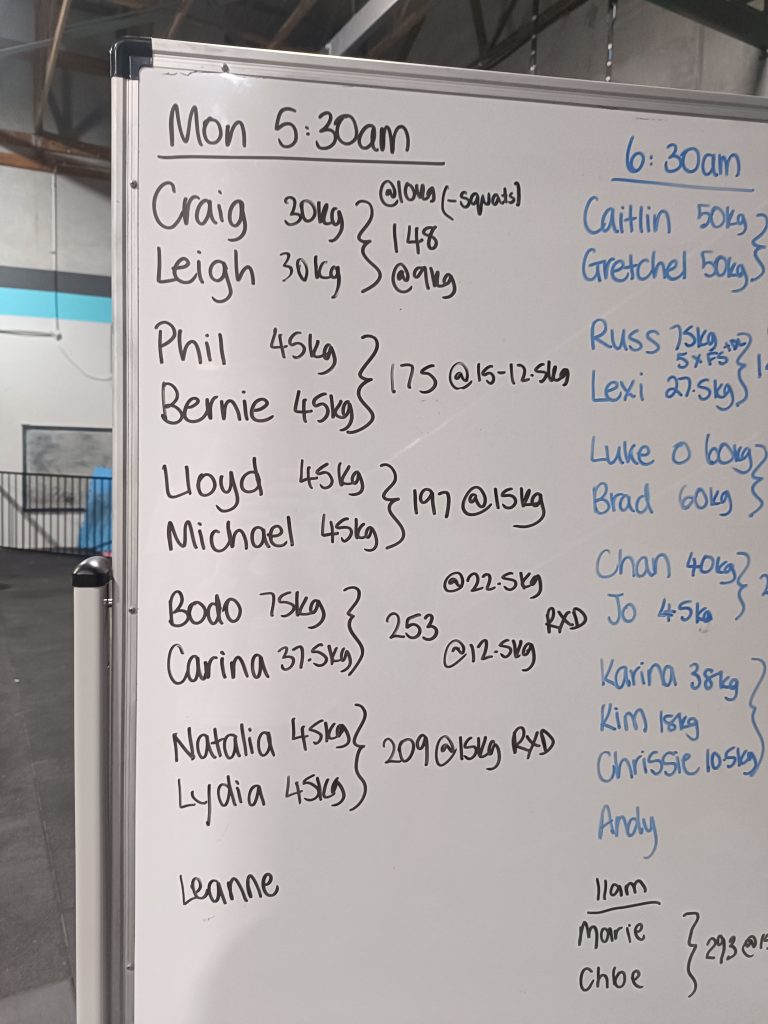 Mon 5:30am
Craig 30kg
Leigh 30kg
@10kg (-squats)
148
@9kg
Phil 45kg
Bernie 45kg
175 @15-12.5kg
Lloyd 45kg
Michael 45kg
197 @15kg
Bodo 75kg
Carina 37.5kg
253
@22.5kg
@12.5kg
RXD
Natalia 45kg
Lydia 45kg
209 @15kg RXD
Leanne
6:30am
Caitlin 50kg
Gretchel 50kg
Russ 75kg
5 x FS
Lexi 27.5kg
Luke O 60kg
Brad 60kg
Chan 40kg
Jo 45kg
Karina 38kg
Kim 18kg
Chrissie 10.5kg
Andy
11am
Marie
Chloe
293 @